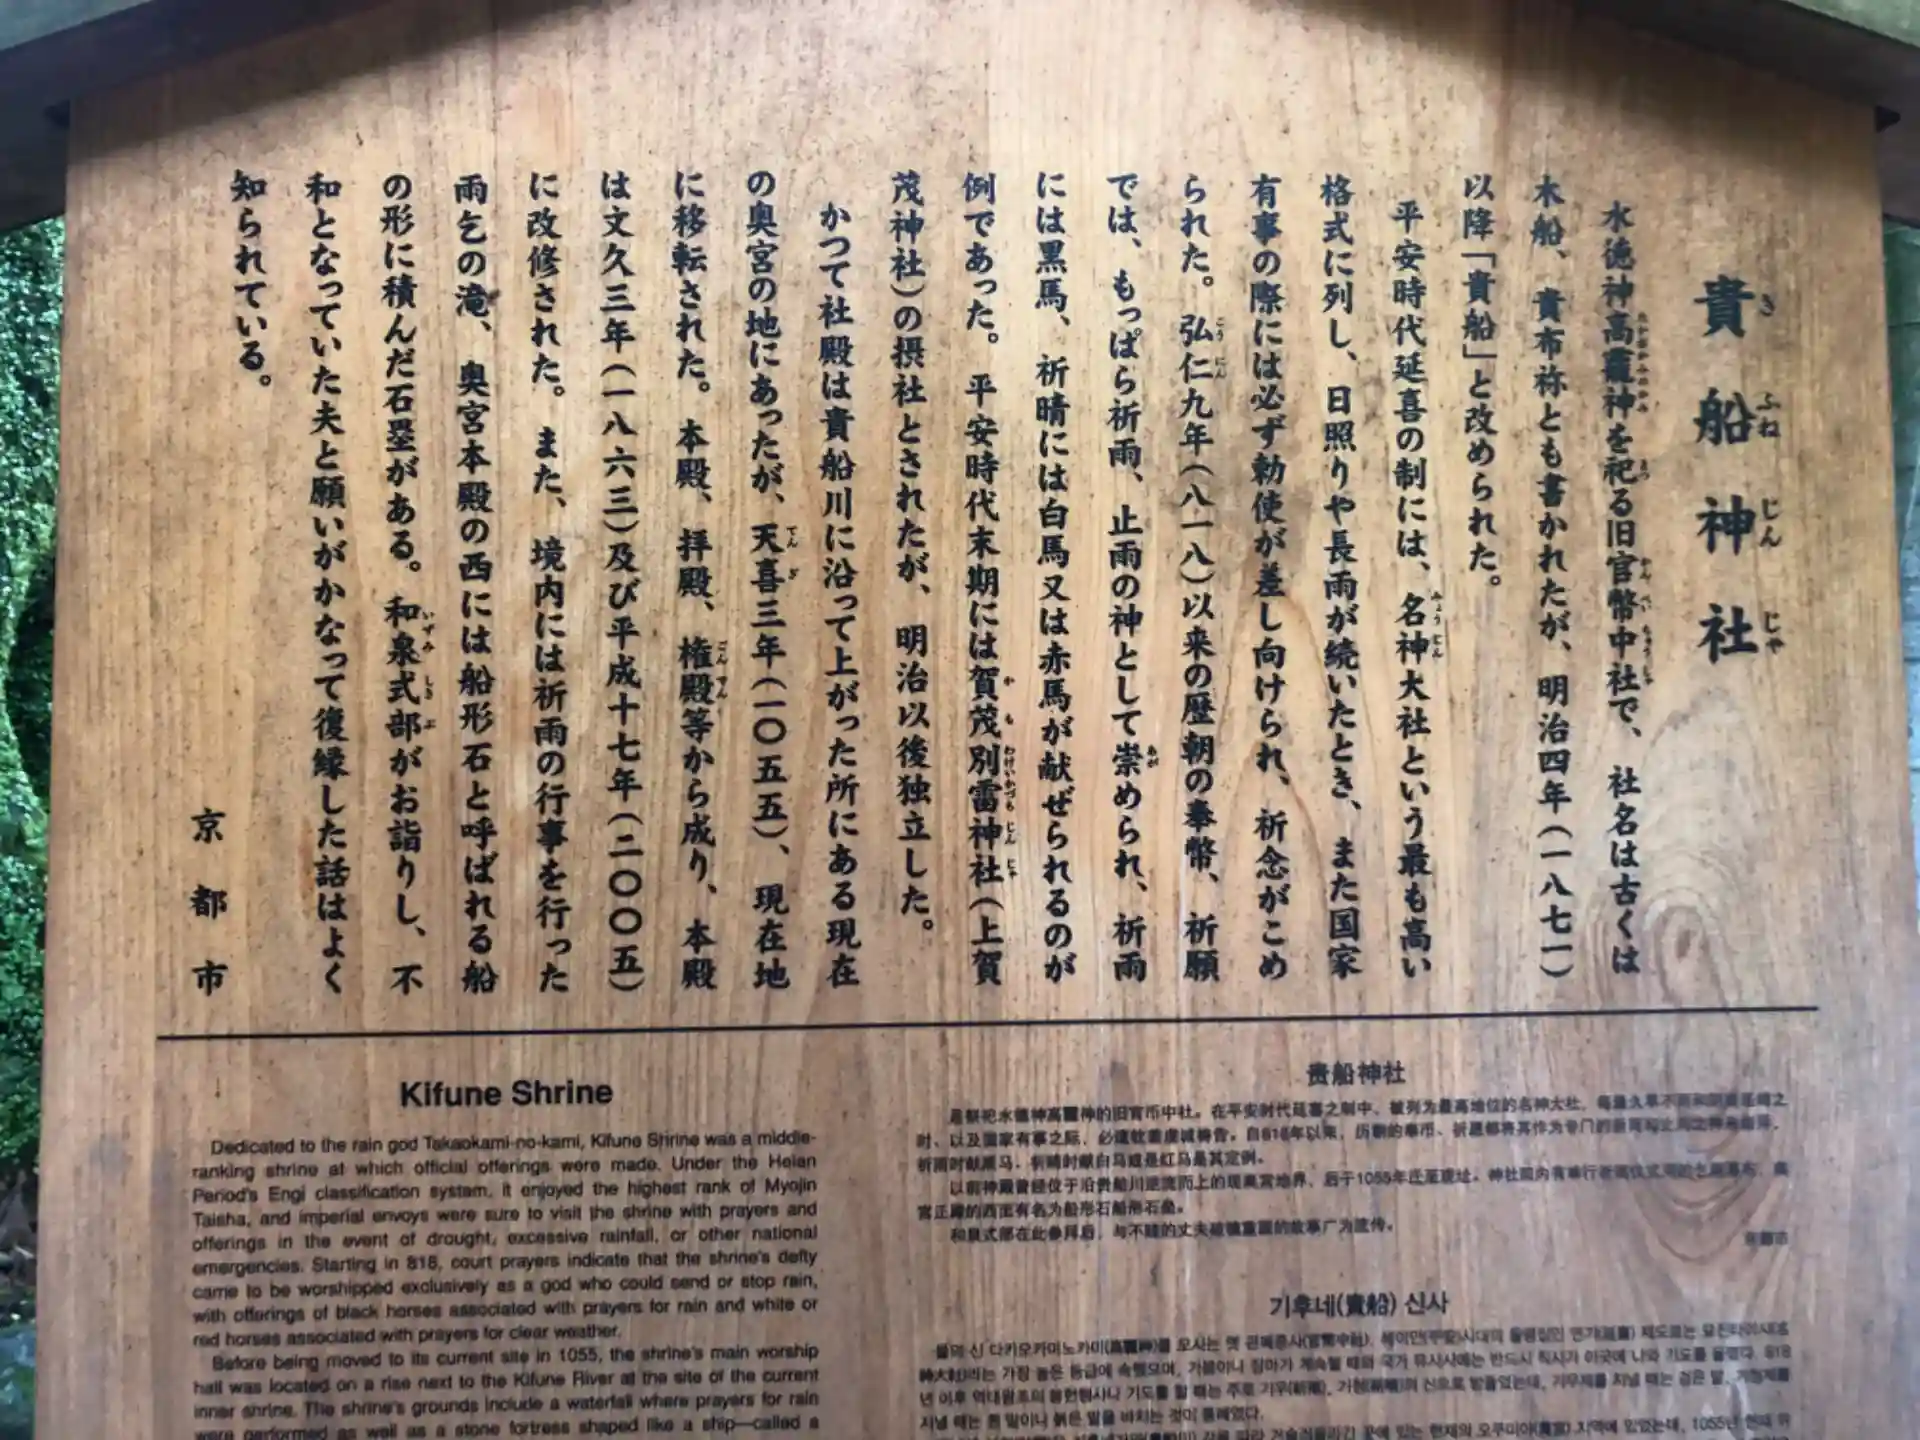 貴船神社
水徳神高龗神を祀る旧官幣中社で、社名は古くは
木船、貴布祢とも書かれたが、明治四年（一八七一）
以降「貴船」と改められた。
平安時代延喜の制には、名神大社という最も高い
格式に列し、日照りや長雨が続いたとき、また国家
有事の際には必ず勅使が差し向けられ、祈念がこめ
られた。弘仁九年（八一八）以来の歴朝の奉幣、祈願
では、もっぱら祈雨、止雨の神として崇められ、祈雨
には黒馬、祈晴には白馬又は赤馬が献ぜられるのが
例であった。平安時代末期には賀茂別雷神社（上賀
茂神社）の摂社とされたが、明治以後独立した。
かつて社殿は貴船川に沿って上がった所にある現在
の奥宮の地にあったが、天喜三年（一〇五五）、現在地
に移転された。本殿、拝殿、権殿等から成り、本殿
は文久三年（一八六三）及び平成十七年（二〇〇五）
に改修された。また、境内には祈雨の行事を行った
雨乞の滝、奥宮本殿の西には船形石と呼ばれる船
の形に積んだ石塁がある。和泉式部がお詣りし、不
和となっていた夫と願いがかなって復縁した話はよく
知られている。
京都市
Kifune Shrine
Dedicated to the rain god Takaokami-no-kami, Kifune Shrine was a middle-
ranking shrine at which official offerings were made. Under the Heian
Period's Engi classification system, it enjoyed the highest rank of Myojin
Taisha, and imperial envoys were sure to visit the shrine with prayers and
offerings in the event of drought, excessive rainfall, or other national
emergencies. Starting in 818, court prayers indicate that the shrine's deity
came to be worshipped exclusively as a god who could send or stop rain,
with offerings of black horses associated with prayers for rain and white or
red horses associated with prayers for clear weather.
Before being moved to its current site in 1055, the shrine's main worship
hall was located on a rise next to the Kifune River at the site of the current
inner shrine. The shrine's grounds include a waterfall where prayers for rain
were performed as well as a stone fortress shaped like a ship—called a
贵船神社
是祭祀水德神高龗神的旧官币中社。在平安时代延喜之制中，被列为最高地位的名神大社，
时，以及国家有事之际，必遣敕使虔诚祷告。自818年以来，历朝的奉币、祈愿都将其作为专门的
祈雨时献黑马，祈晴时献白马或是红马是其定例。
以前神殿曾经位于沿贵船川逆流而上的现奥宫地界，后于1055年迁至现址。
宫正殿的西面有名为船形石船形石垒。
和泉式部在此参拜后，与不睦的丈夫破镜重圆的故事广为流传。
京都市
기후네(貴船) 신사